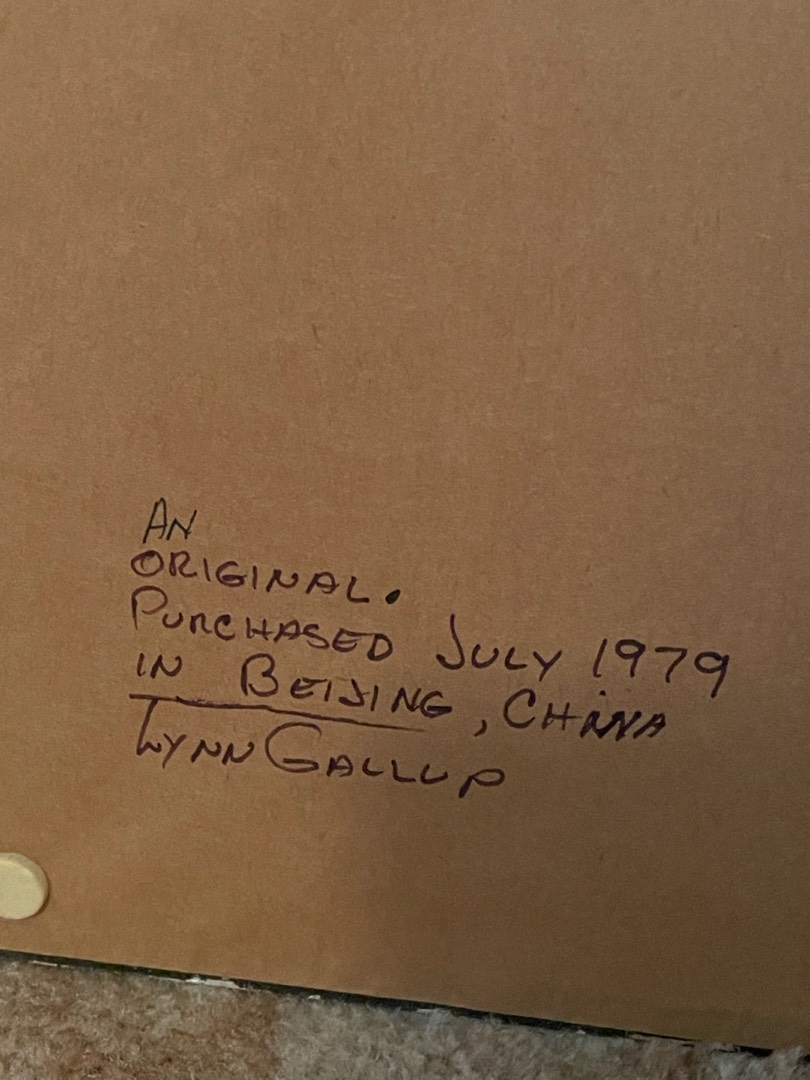 AN
ORIGINAL.
PURCHASED JULY 1979
IN BEIJING, CHINA
LYNN GALLUP